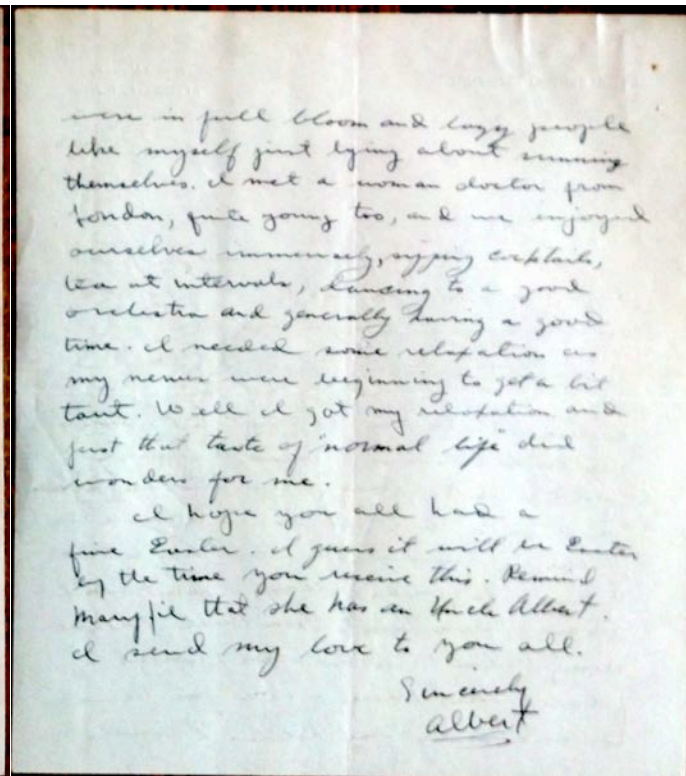 were in full bloom and lazy people
like myself just lying about sunning
themselves. I met a woman doctor from
London, quite young too, and we enjoyed
ourselves immensely, sipping cocktails,
tea at intervals, dancing to a good
orchestra and generally having a good
time. I needed some relaxation as
my nerves were beginning to get a bit
taut. Well I got my relaxation and
just that taste of "normal life" did
wonders for me.
I hope you all had a
fine Easter. I guess it will be Easter
by the time you receive this. Remind
that she has an Uncle Albert.
I send my love to you all.
Sincerely
Albert